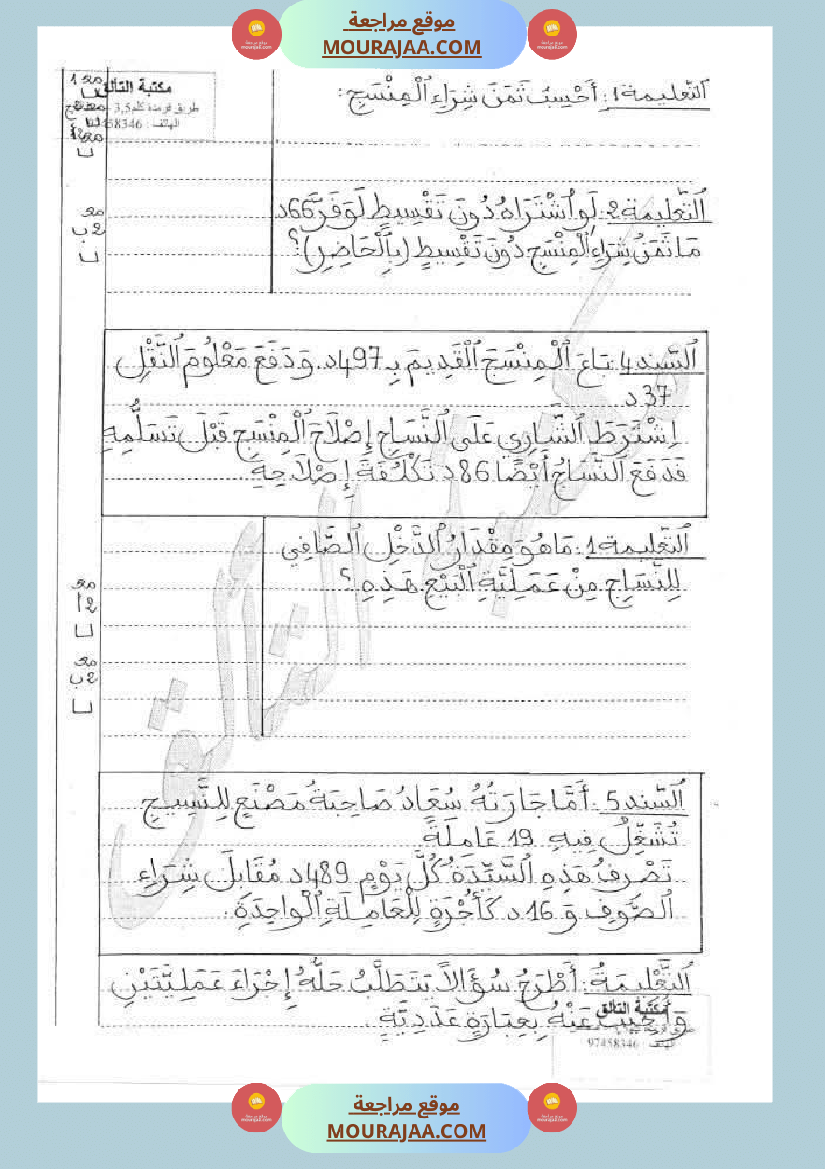 موقع مراجعة
MOURAJAA.COM
مكتبة التألق
98458346 : الهاتف
اَلتَّعْلِيمَة 1 : أَحْسِبُ ثَمَنَ شِرَاءِ اَلْمِنْسَجِ :
مع 2 ب
اَلتَّعْلِيمَة 2 : لَوِ اُشْتَرَاهُ دُونَ تَقْسِيطٍ لَوَفَّرَ 66د
مَا ثَمَنُ شِرَاءِ اَلْمِنْسَجِ دُونَ تَقْسِيطٍ (بِالْحَاضِرِ)؟
اَلسَّنَد 4 : بَاعَ اَلْمِنْسَجَ اَلْقَدِيمَ بِـ 497د. وَ دَفَعَ مَعْلُومَ اَلنَّقْلِ
37 د
اِشْتَرَطَ اَلشَّارِي عَلَى اَلنَّسَّاجِ إِصْلَاحَ اَلْمِنْسَجِ قَبْلَ تَسَلُّمِهِ
فَدَفَعَ اَلنَّسَّاجُ أَيْضًا 86د تَكْلُفَةَ إِصْلَاحِهِ
اَلتَّعْلِيمَة 1 : مَا هُوَ مِقْدَارُ اَلدَّخْلِ اَلصَّافِي
لِلنَّسَّاجِ مِنْ عَمَلِيَّةِ اَلْبَيْعِ هَذِهِ ؟
مع 2 أ
مع 2 ب
اَلسَّنَد 5 : أَمَّا جَارَتُهُ سُعَادُ صَاحِبَةُ مَصْنَعٍ لِلنَّسِيجِ
تُشَغِّلُ فِيهِ 19 عَامِلَةً
تَصْرِفُ هَذِهِ اَلسَّيِّدَةُ كُلَّ يَوْمٍ 489د مُقَابِلَ شِرَاءِ
اَلصُّوفِ وَ 16د كَأُجْرَةٍ لِلْعَامِلَةِ اَلْوَاحِدَةِ.
اَلتَّعْلِيمَةُ : أَطْرَحُ سُؤَالاً يَتَطَلَّبُ حَلُّهُ إِجْرَاءَ عَمَلِيَّتَيْنِ
وَ أُجِيبُ عَنْهُ بِعِبَارَةٍ عَدَدِيَّةٍ
مكتبة التألق
97458346 : الهاتف
موقع مراجعة
MOURAJAA.COM